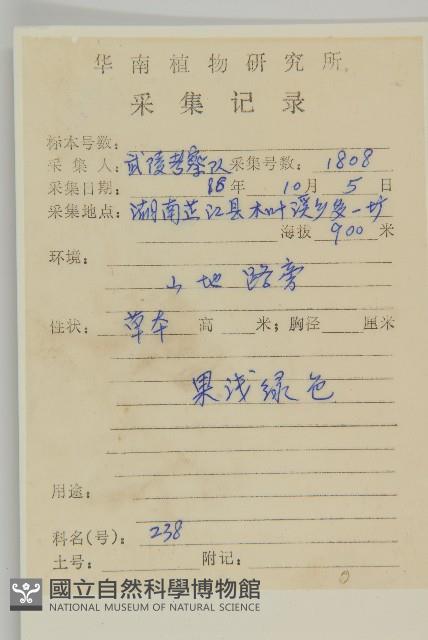 华南植物研究所
采集记录
标本号数:
采集人: 武陵考察队 采集号数: 1808
采集日期: 1988年 10月 5日
采集地点: 湖南芷江县木叶溪乡
海拔 900 米
环境:
山地路旁
性状: 草本 高 米; 胸径 厘米
果浅绿色
用途:
科名(号): 238
土号: 附记:
國立自然科學博物館
NATIONAL MUSEUM OF NATURAL SCIENCE